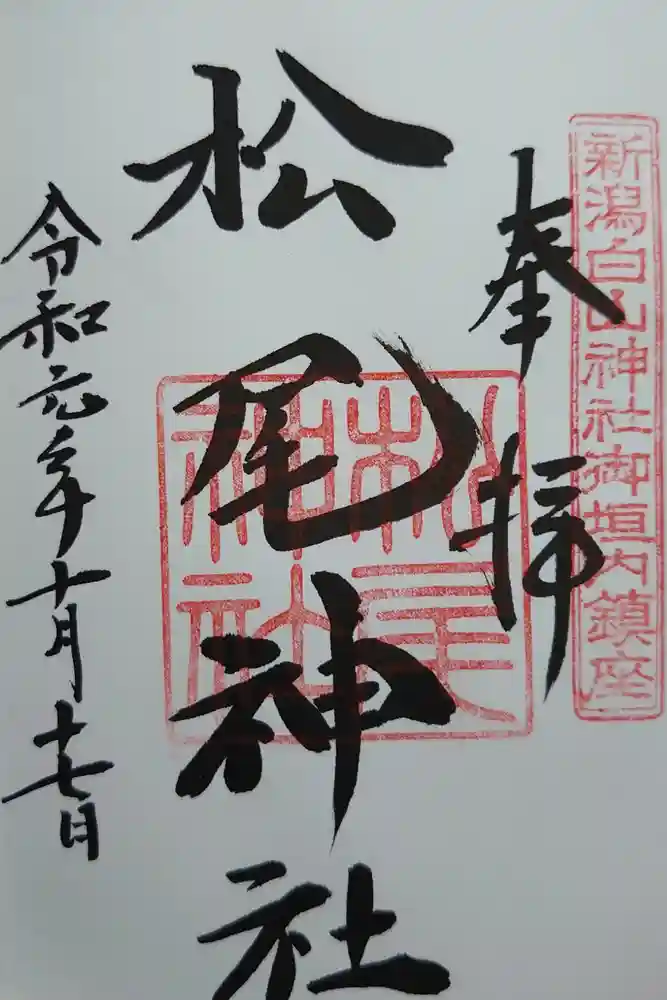 新潟白山神社御垣内鎮座
奉拝
松尾神社
松尾神社
令和元年十月十七日